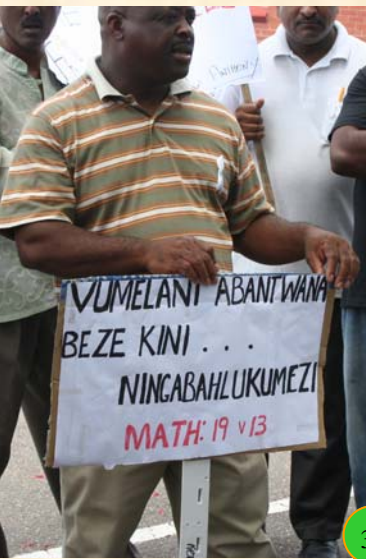 VUMELANI ABANTWANA
BEZE KINI . . .
NINGABAHLUKUMEZI
MATH: 19 V 13
3